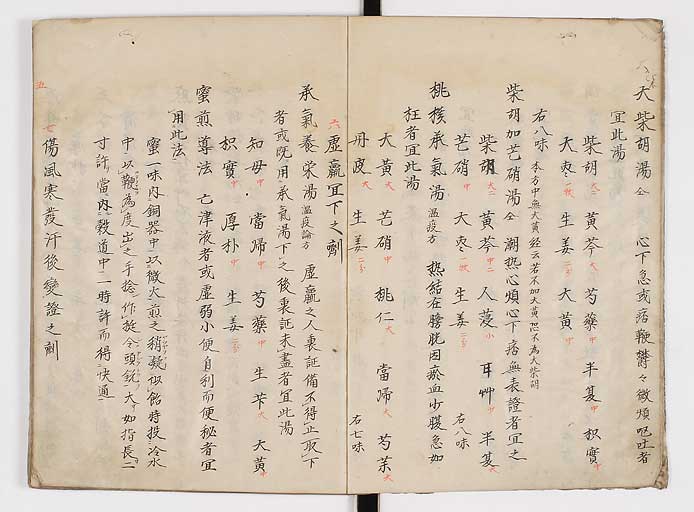 大柴胡湯 仝 心下急或痞鞕欝々微煩嘔吐者
宜此湯
柴胡 大二 黄芩 大 芍藥 中 半夏 中 枳實 中
大枣 一枚 生姜 二分 大黄 中
右八味 本方中無大黄 経云若不加大黄恐不為大柴胡
柴胡加芒硝湯 仝 潮热心煩心下痞無表證者宜之
柴胡 大二 黄芩 中二 人葠 小 甘艸 中 半夏 大
芒硝 中 大枣 一枚 生姜 二分 右八味
桃核承氣湯 温疫方 热結在膀胱因瘀血少腹急如
狂者宜此湯
大黄 大 芒硝 中 桃仁 大 當帰 大 芍薬 大
丹皮 大 生姜 二分 右七味
六 虚羸宜下之劑
承氣養栄湯 温疫論方 虚羸之人裏証備不得止取下
者或既用承氣湯下之後裏証未盡者宜此湯
知母 中 當帰 中 芍藥 中 生芐 大 大黄 中
枳實 中 厚朴 中 生姜 二分
蜜煎導法 亡津液者或虚弱小便自利而便秘者宜
用此法
蜜一味内銅器中以微火煎之稍凝似飴時投冷水
中以鞕為度出之手捻作挺令頭鋭大如指長二
寸許當内穀道中一時許而得快通
七 傷風寒發汗後變證之劑
五